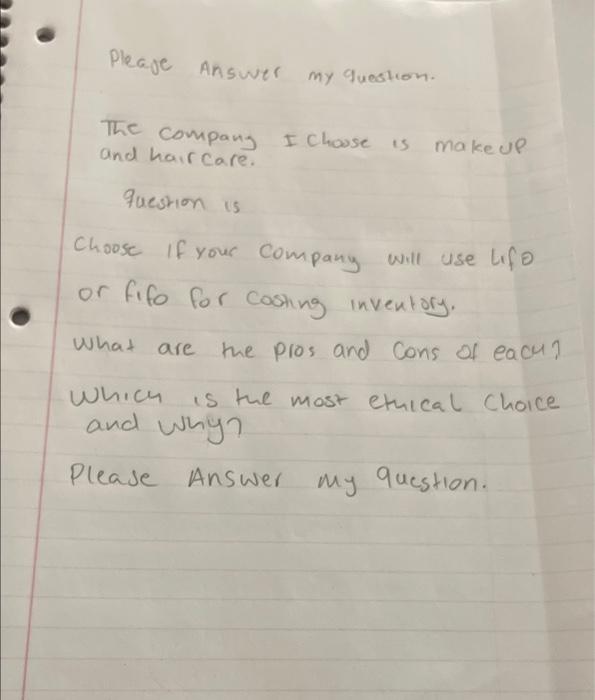 Please Answer my question.
The company I Choose is makeup
and hair care.
question is
Choose if your Company will use lifo
or fifo for costing inventory.
what are the pros and cons of each?
Which is the most ethical choice
and why?
Please Answer my question.